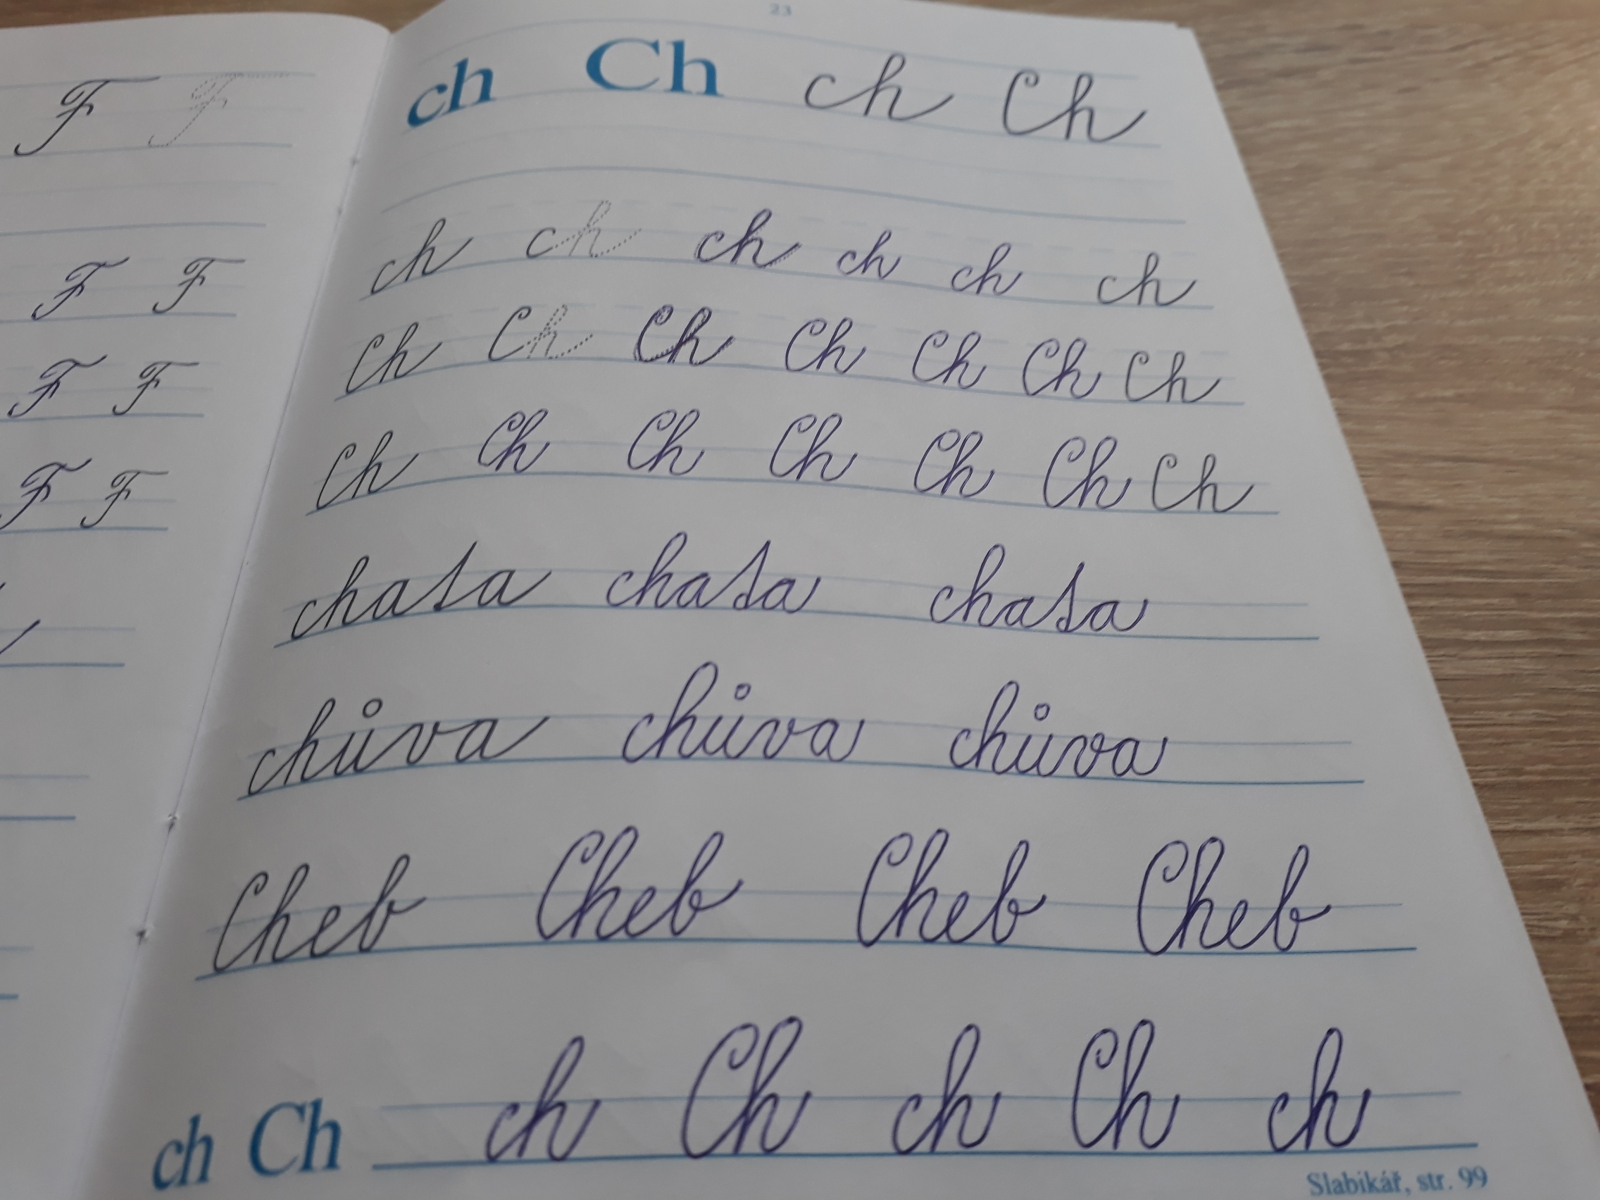 23
F F
F F
F F
F F
ch Ch ch Ch
ch ch ch ch ch ch
Ch Ch Ch Ch Ch Ch Ch
Ch Ch Ch Ch Ch Ch Ch
chasa chasa chasa
chůva chůva chůva
Cheb Cheb Cheb Cheb
ch Ch ch Ch ch Ch ch
Slabikář, str. 99